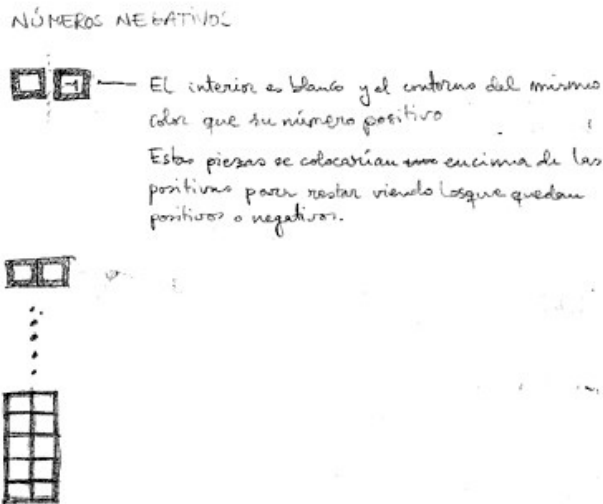 NÚMEROS NEGATIVOS
-1
El interior es blanco y el contorno del mismo
color que su número positivo
Estas piezas se colocarían encima de las
positivas para restar viendo los que quedan
positivos o negativos.